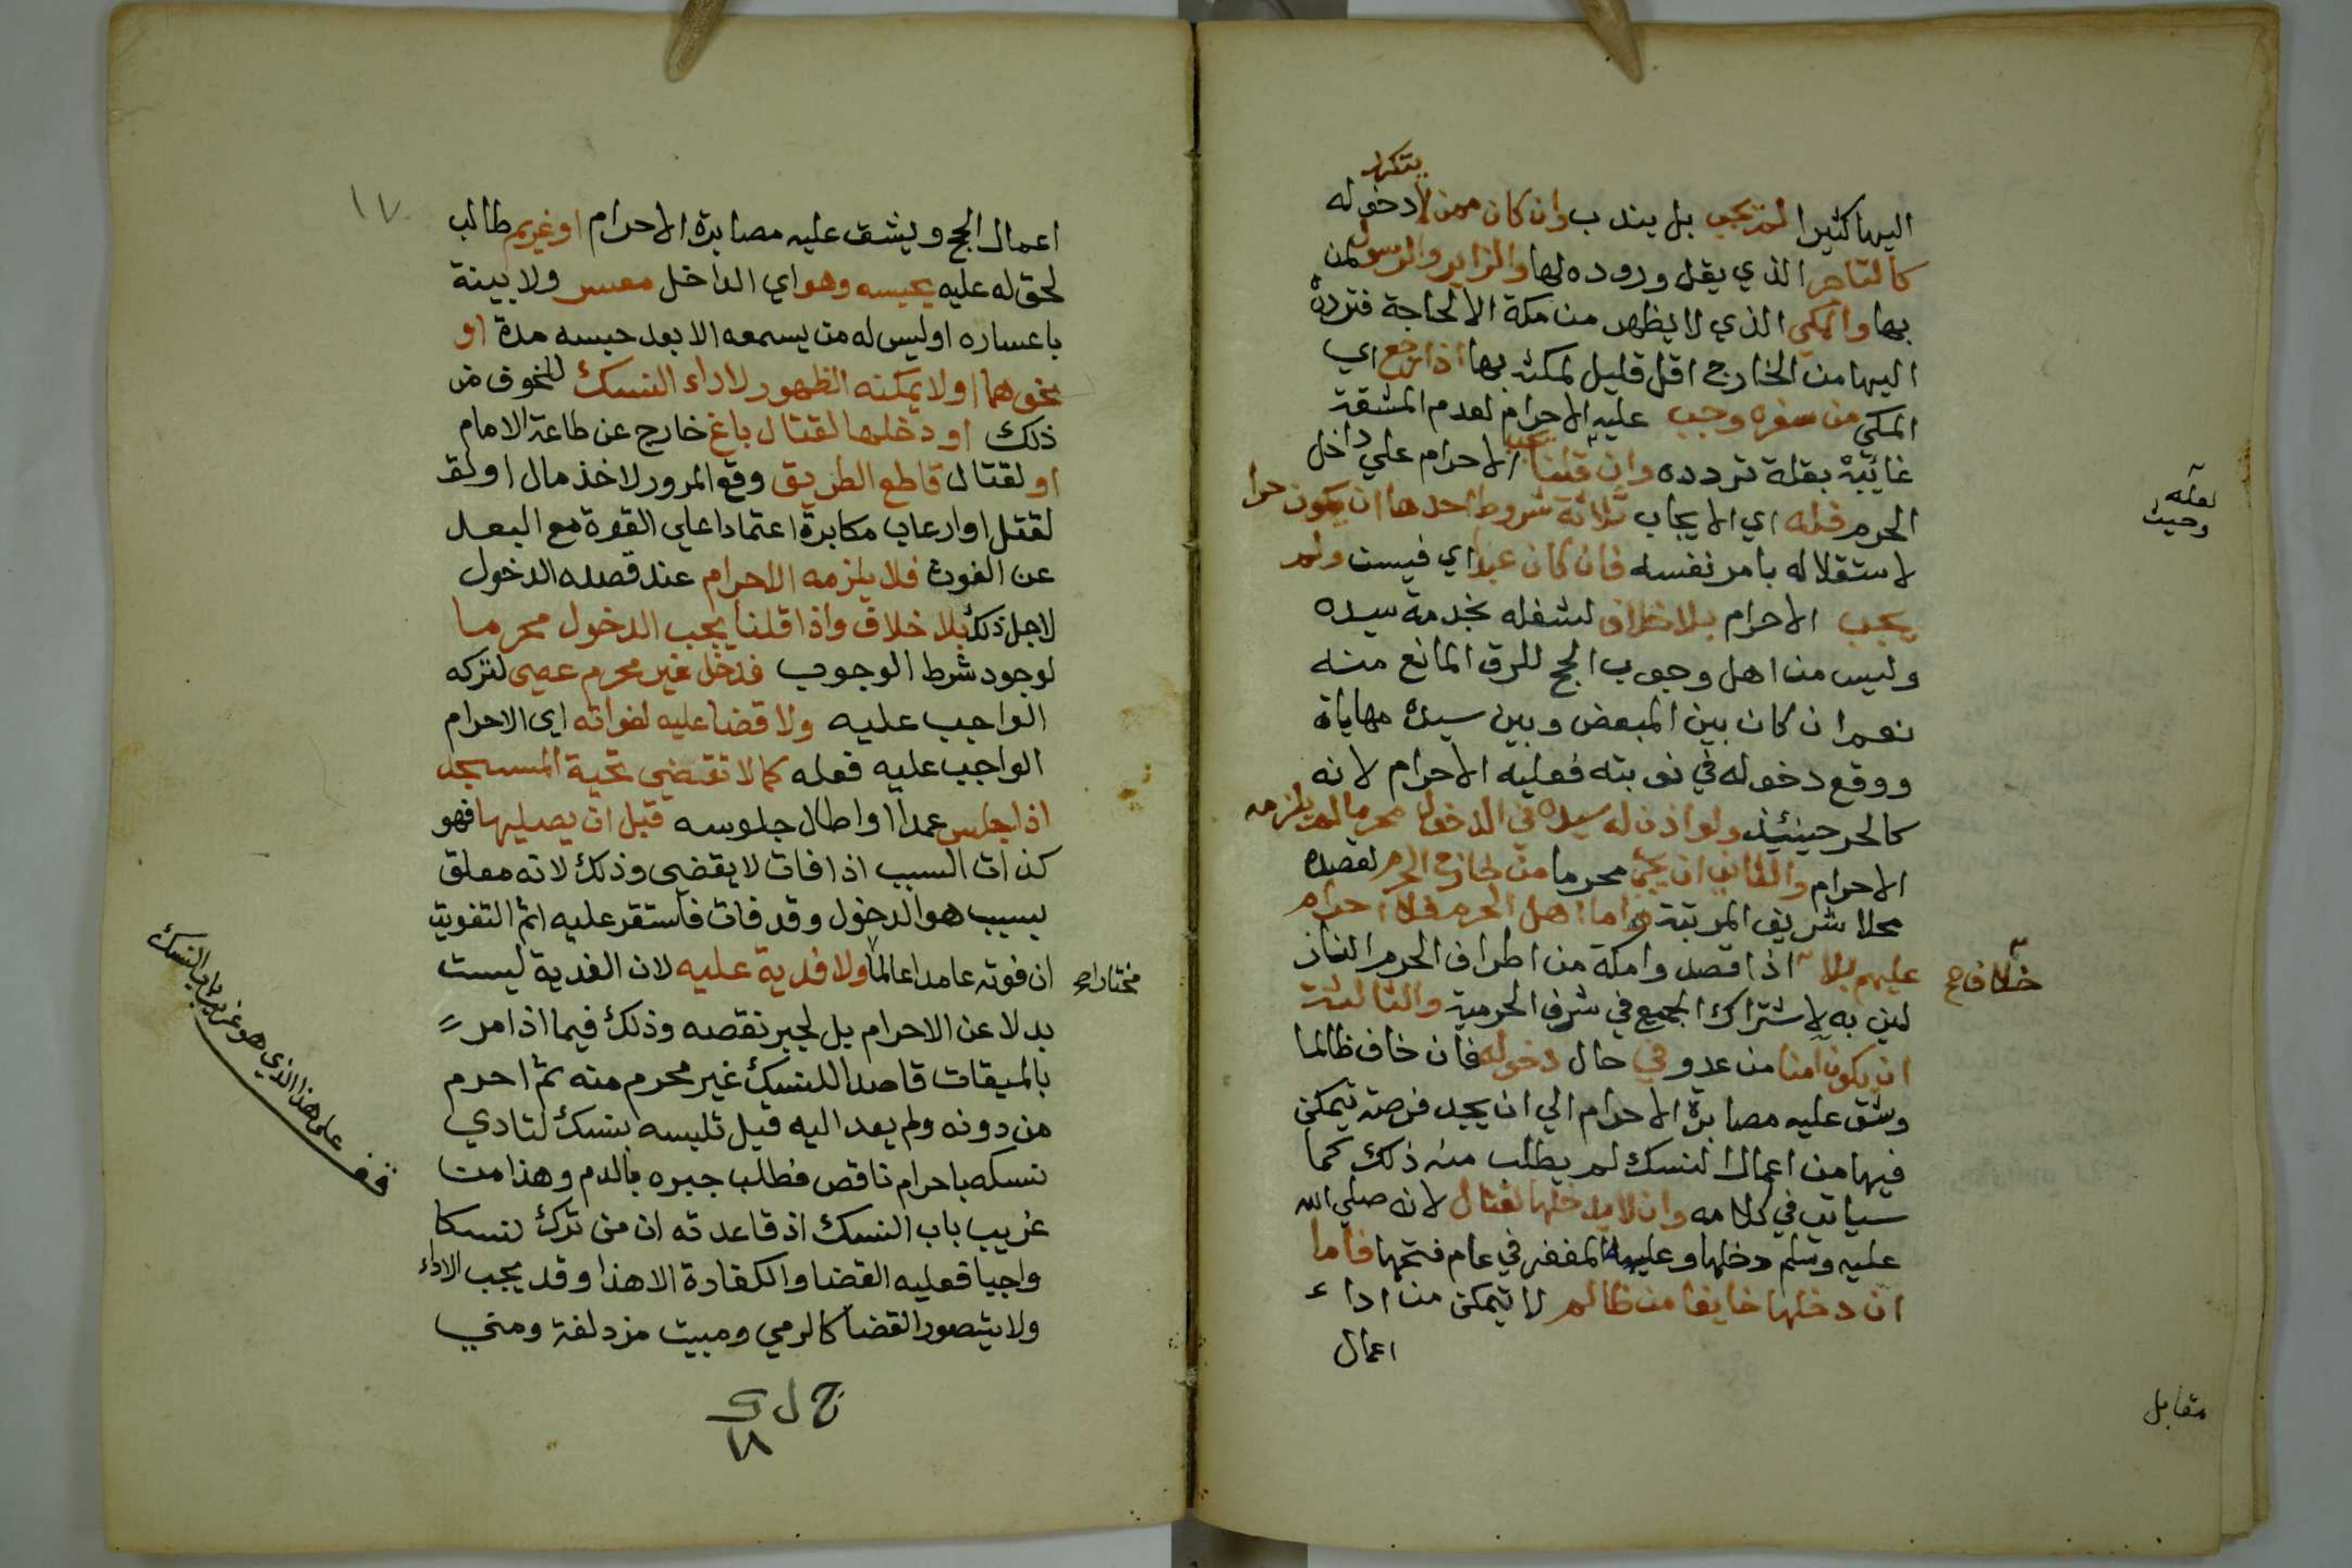 يتكرر
اليها كثيرا لم يجب بل يندب وان كان ممن لا دخوله
كالتاجر الذي يقل وروده لها والزاير والرسول لمن
بها والمكي الذي لا يظهر من مكة الا لحاجة فتردده
اليها من الخارج اقل قليل لمكثه بها اذا رجع اي
المكي من سفره وجب عليه الاحرام لعدم المشقة
غائبة بقلة تردده وان قلنا يجب الاحرام علي داخل
لعله
وحيث
الحرم فله اي الايجاب ثلاثة شروط احدها ان يكون حرا
لاستقلاله بامر نفسه فان كان عبدا اي فيست ولم
يجب الاحرام بلا خلاف لشغله بخدمة سيده
وليس من اهل وجوب الحج للرق المانع منه
نعم ان كان بين المبعض وبين سيده مهاياة
ووقع دخوله في نوبته فعليه الاحرام لانه
كالحر حينئذ ولو اذن له سيده في الدخول محرما لم يلزمه
الاحرام والثاني ان يجئ محرما من خارج الحرم لقصده
محلا شريف المرتبة واما اهل الحرم فلا احرام
عليهم بلا اذا قصدوا مكة من اطراف الحرم الناز
خلاف صح
لين به لاشتراك الجميع في شرف الحرمية والثالثة
ان يكون امنا من عدو في حال دخوله فان خاف ظالما
وشق عليه مصابرة الاحرام الي ان يجد فرصة يتمكن
فيها من اعمال النسك لم يطلب منه ذلك كما
سياتي في كلامه وان لا يدخلها لقتال لانه صلي الله
عليه وسلم دخلها وعليه المغفر في عام فتحها فاما
ان دخلها خايفا من ظالم لا يتمكن من اداء
اعمال
مقابل
١٧
اعمال الحج ويشق عليه مصابرة الاحرام او غريم طالب
لحق له عليه يحبسه وهو اي الداخل معسر ولا بينة
باعساره او ليس له من يسمعه الا بعد حبسه مدة او
نحوهما او لا يمكنه الظهور لاداء النسك للخوف من
ذلك او دخلها لقتال باغ خارج عن طاعة الامام
او لقتال قاطع الطريق وقع المرور لاخذ مال او لقـ
لقتل او ارعاب مكابرة اعتمادا علي القوة مع البعد
عن الغوث فلا يلزمه الاحرام عند قصده الدخول
لاجل ذلك بلا خلاف واذا قلنا يجب الدخول محرما
لوجود شرط الوجوب فدخل غير محرم عصى لتركه
الواجب عليه ولا قضا عليه لفواته اي الاحرام
الواجب عليه فعله كما لا تقتضى تحية المسجد
اذا جلس عمدا او اطال جلوسه قبل ان يصليها فهو
كذات السبب اذا فات لا يقضى وذلك لانه معلق
بسبب هو الدخول وقد فات فاستقر عليه اثم التفويت
ان فوته عامدا عالما ولا فدية عليه لان الفدية ليست
مختارا صح
بدلا عن الاحرام بل لجبر نقصه وذلك فيما اذا مر
بالميقات قاصدا للنسك غير محرم منه ثم احرم
من دونه ولم يعد اليه قبل تلبسه بنسك لتادي
نسكه باحرام ناقص فطلب جبره بالدم وهذا من
غريب باب النسك اذ قاعدته ان من ترك نسكا
واجبا فعليه القضا والكفارة الا هذا وقد يجب الاداء
ولا يتصور القضا كالرمي ومبيت مزدلفة ومني
قف على هذا الذي هو غريب باب النسك
١٨